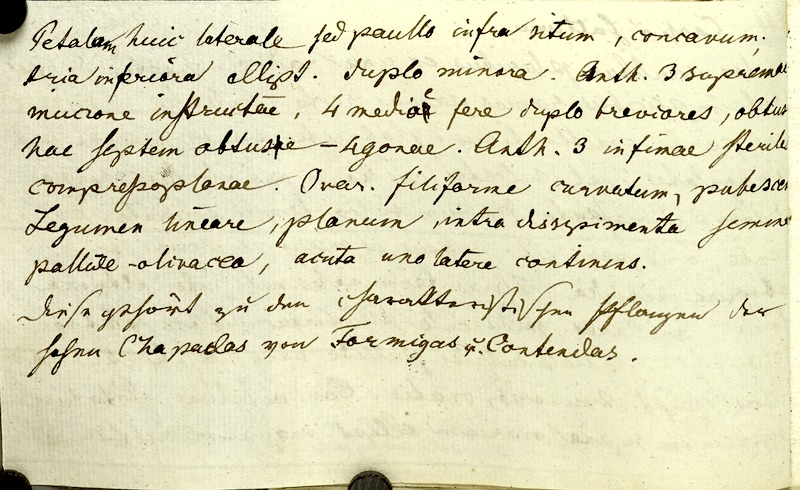 Petalum huic laterale sed paullo infra situm, concavum.
tria inferiora ellipt. duplo minora. Anth. 3 supremae
mucrone instructae, 4 mediae fere duplo breviores, obtus
hae septem obtuse - 4gonae. Anth. 3 infimae steriles
compressoplanae. Ovar. filiforme curvatum, pubescen
Legumen lineare, planum, intra dissepimenta semin
pallide-olivacea, acuta uno latere continens.
Diese gehört zu den charakteristischen Pflanzen der
hohen Chapadas von Formigas u. Contendas.